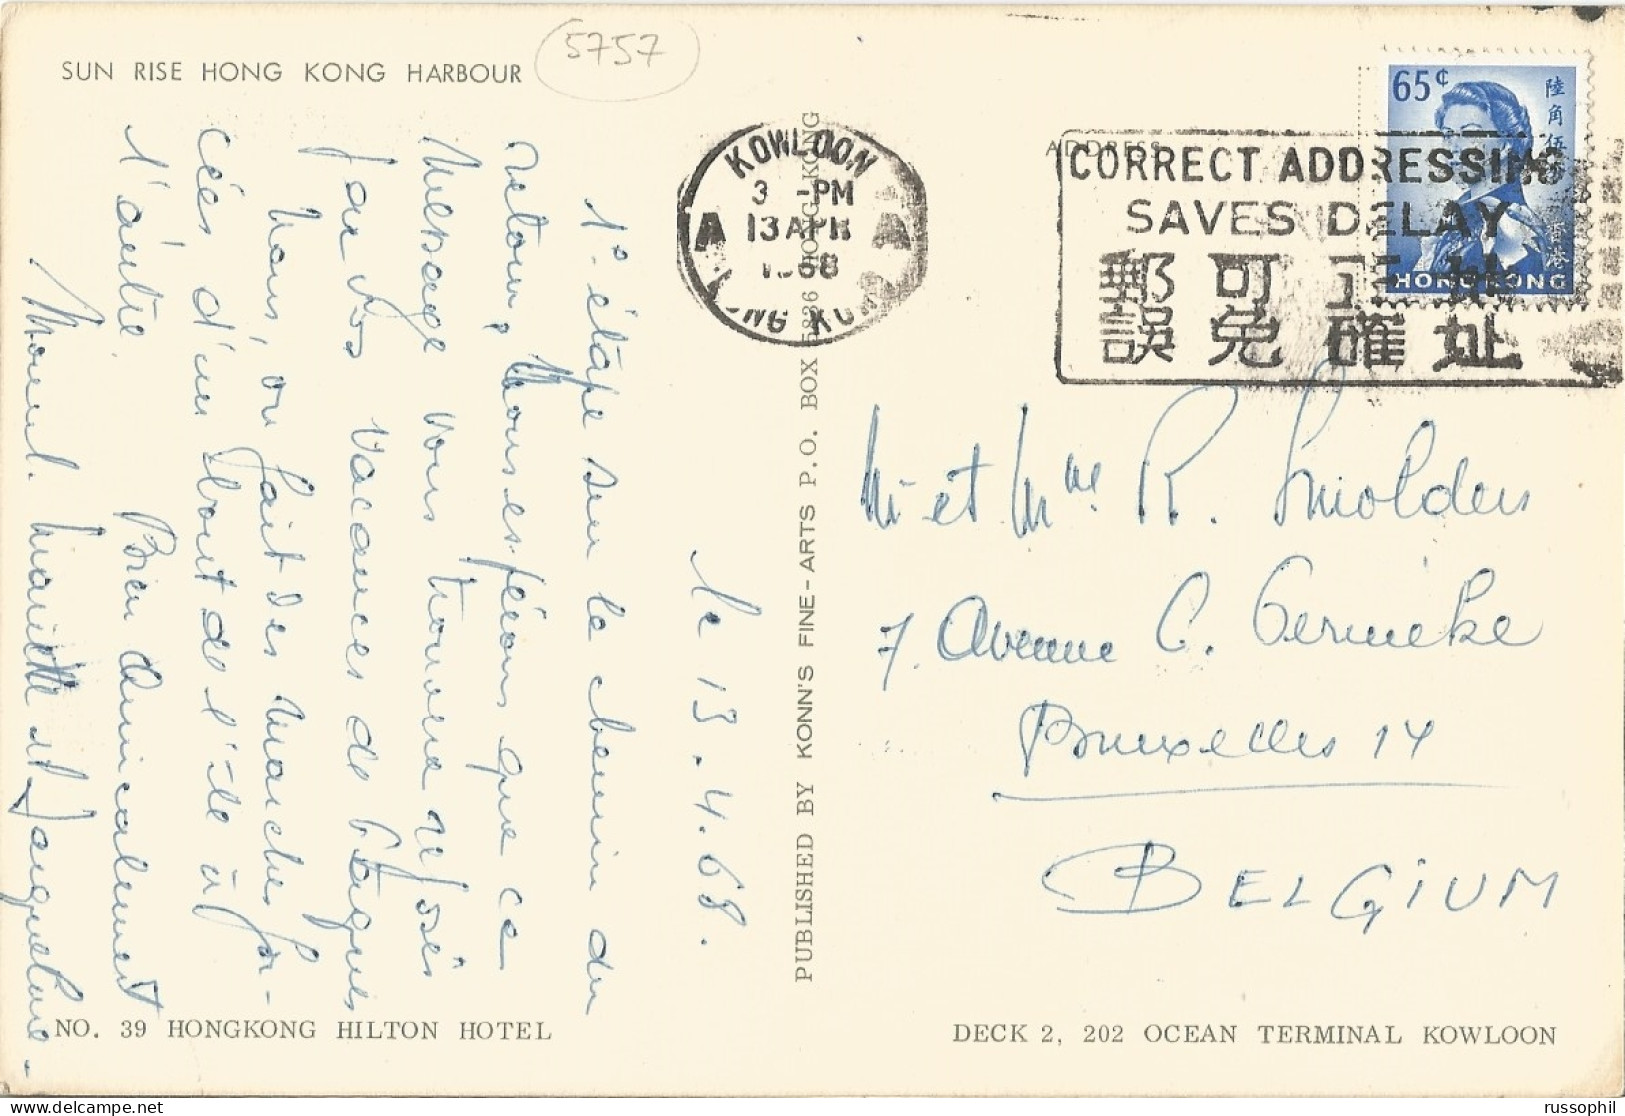 SUN RISE HONG KONG HARBOUR
5757
le 13.4.68.
1° étape sur le chemin du
retour, Nous espérons que ce
message vous trouvera reposés
par vos vacances de Pâques
Nous, on fait des marches for-
cées d'un bout de l'île à
l'autre
Bien amicalement
Mariette et Jacqueline.
NO. 39 HONGKONG HILTON HOTEL
PUBLISHED BY KONN'S FINE-ARTS P.O. BOX 5826 HONG KONG
KOWLOON
3 -PM
13 APR
1968
HONG KONG
A A
ADDRESS
CORRECT ADDRESSING
SAVES DELAY
郵可正地
誤免確址
65¢
陸角伍
香港
HONG KONG
M et Mme R. Smolders
7. Avenue C.
Bruxelles 14
BELGIUM
DECK 2, 202 OCEAN TERMINAL KOWLOON
russophil